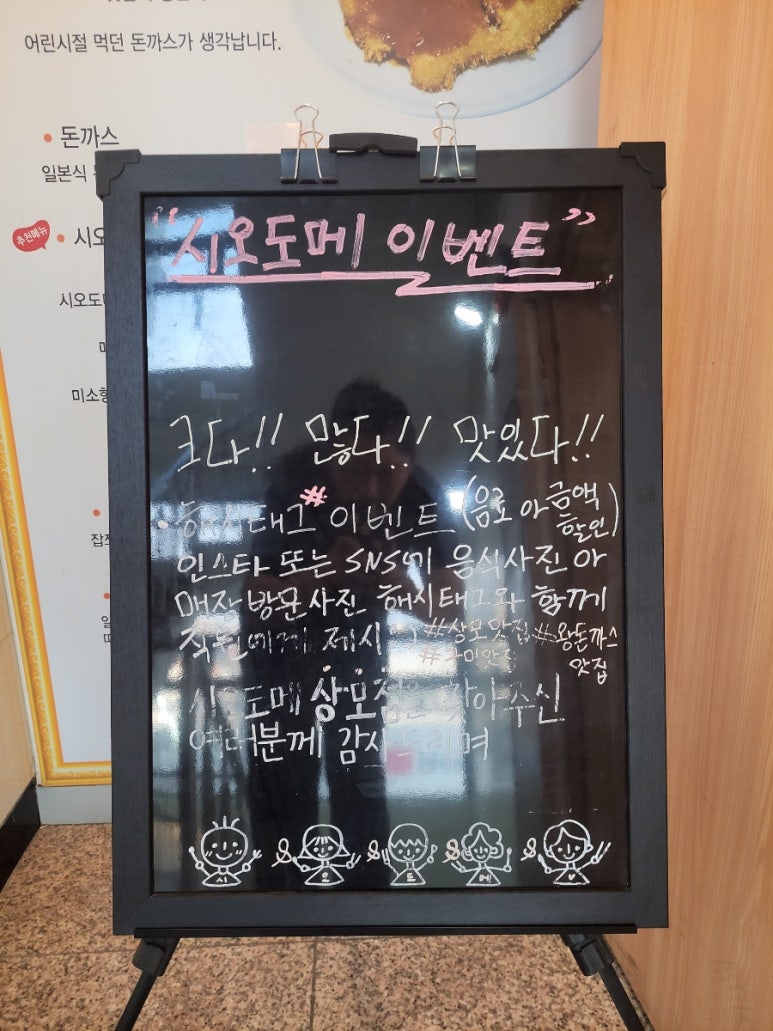 어린시절 먹던 돈까스가 생각납니다.
• 돈까스
일본식
추천메뉴
• 시오
시오도메
미소
"시오도메 이벤트"
크다!! 많다!! 맛있다!!
• 해시태그# 이벤트 (음료 or 금액 할인)
인스타 또는 SNS에 음식사진 or
매장 방문사진 해시태그와 함께
직원에게 제시 #상모맛집 #왕돈까스
#구미맛집 맛집
시오도메 상모점을 찾아주신
여러분께 감사드리며
시 오 도 메 ♥